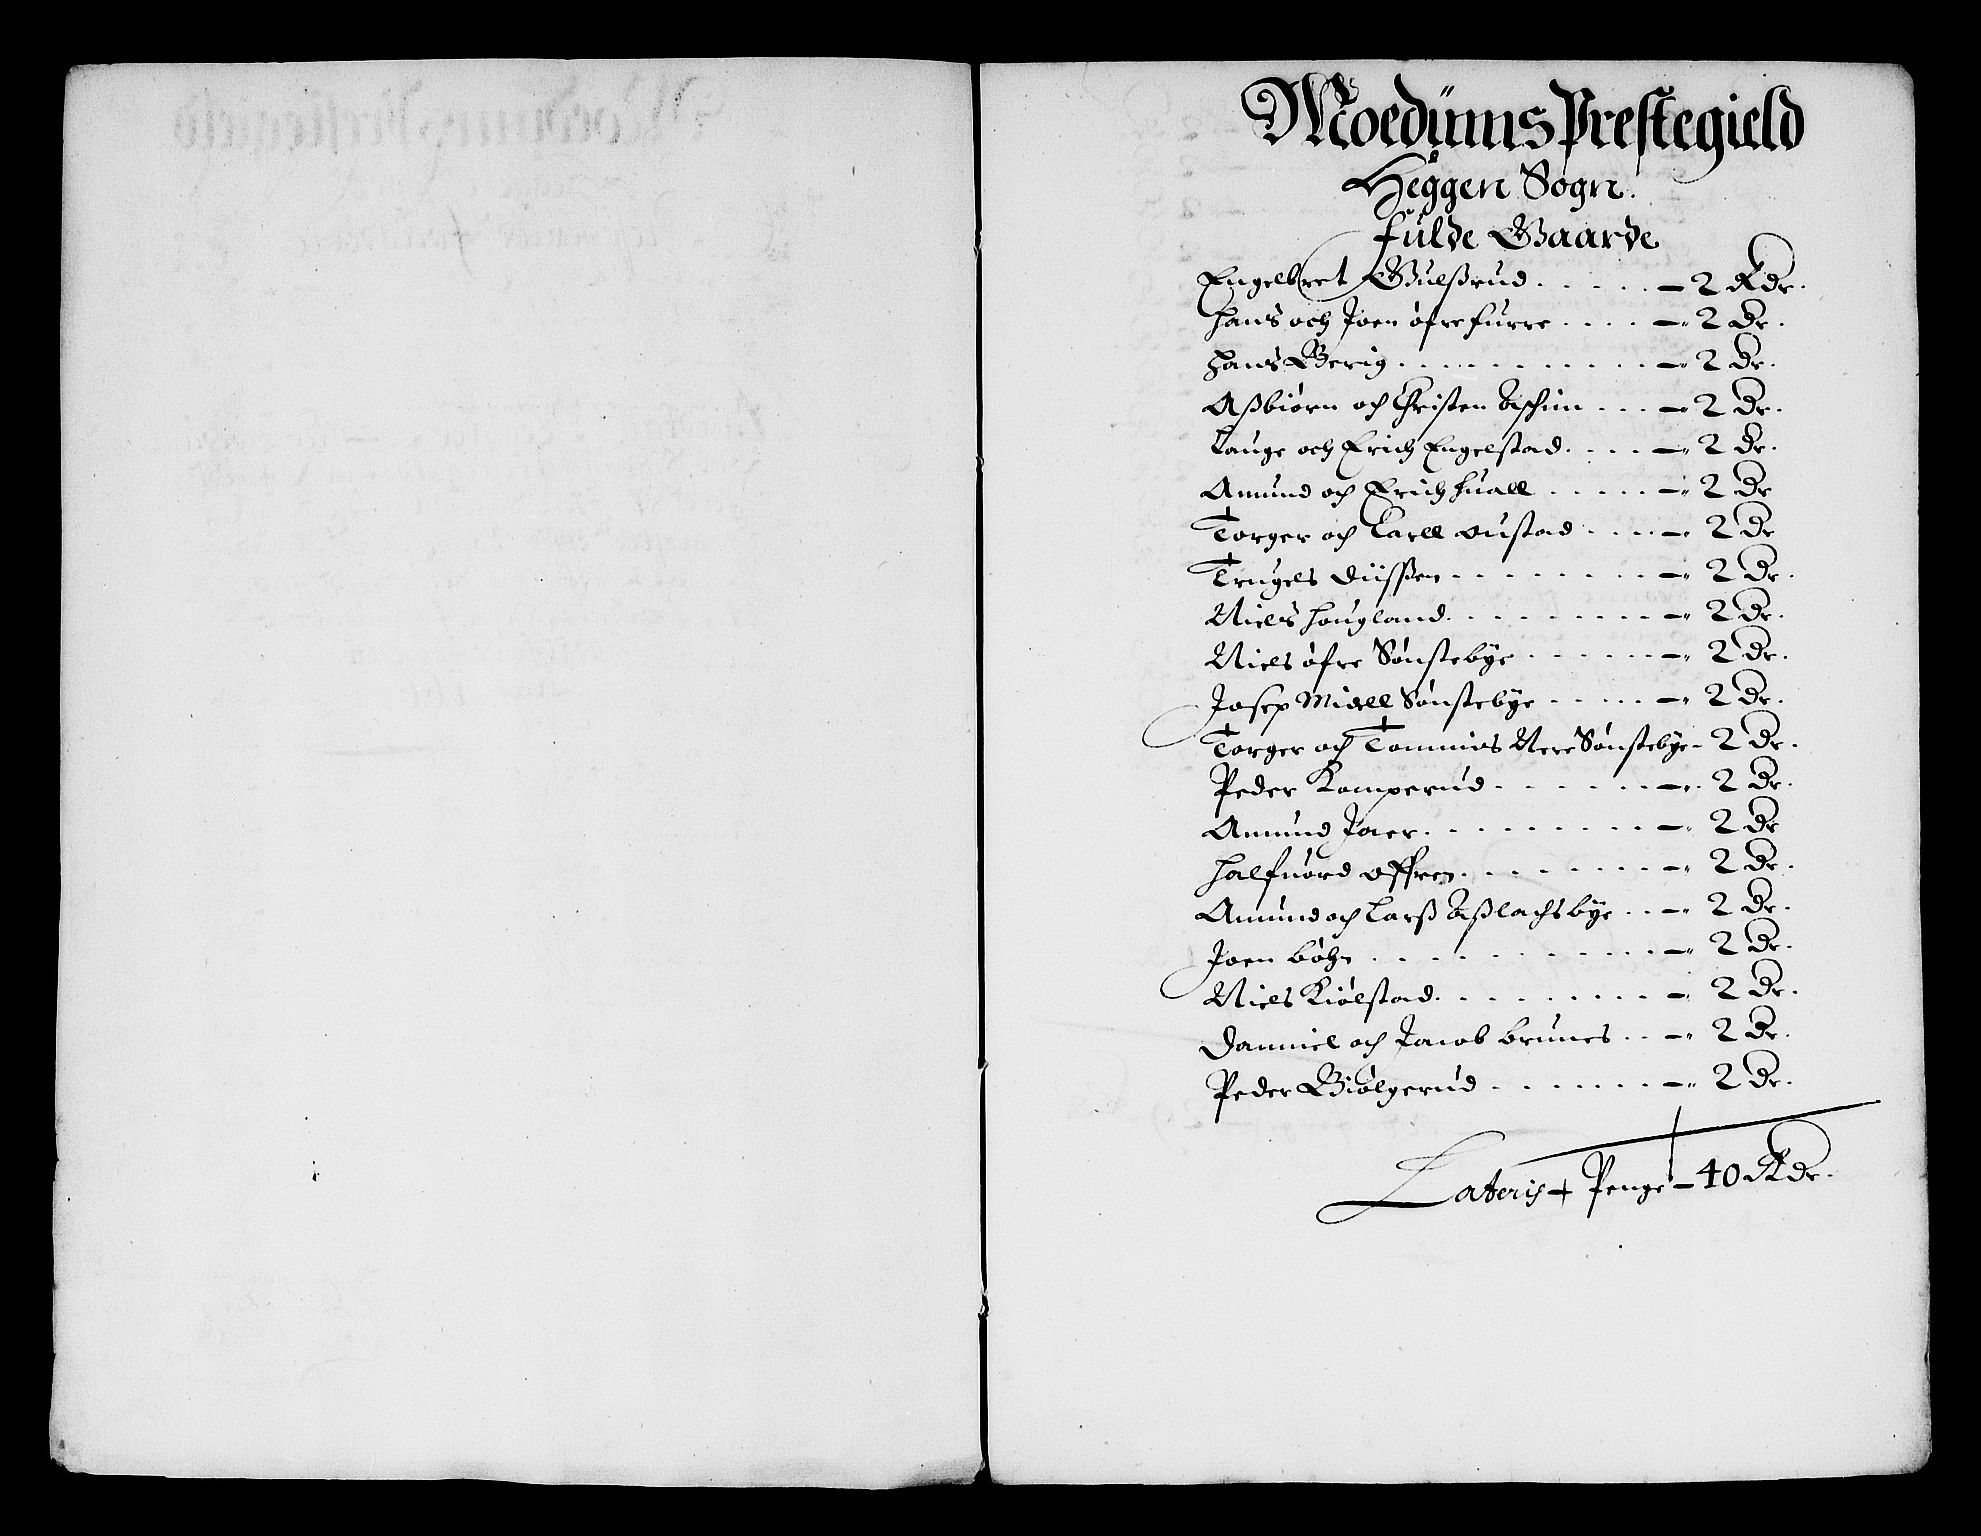 Moedüms Prestegield
Heggen Sogn.
fulde Gaarde
Engelbret Gulßrud . . . . . — 2 Rdr.
Hans och Joen øfre furre . . . . — 2 dr.
Hans Berig . . . . . . . . . . — 2 dr.
Aßbiørn och Christen Aschim . . . — 2 dr.
Lauge och Erich Engelstad . . . . — 2 dr.
Amund och Erich huall . . . . . — 2 dr
Torger och Carll oustad . . . . — 2 dr
Trugels Düssen . . . . . . . . — 2 dr.
Niels Hougland . . . . . . . . — 2 dr.
Niels øfre Sønstebye . . . . . — 2 dr.
Josep Midell Sønstebye . . . . . — 2 dr.
Torger och Tommos Nere Sønstebye - 2 dr.
Peder Komperud . . . . . . . — 2 dr.
Amund Jaer . . . . . . . . . — 2 dr
Halfuord offren . . . . . . . — 2 dr.
Amund och Larß Aßlachsbye . . — 2 dr.
Joen Bøhn . . . . . . . . . . — 2 dr.
Niels Kiølstad . . . . . . . . — 2 dr.
Danniel och Jacob Brunes . . — 2 dr.
Peder Giølgerud . . . . . . . — 2 dr.
Lateris + Penge — 40 Rdr.